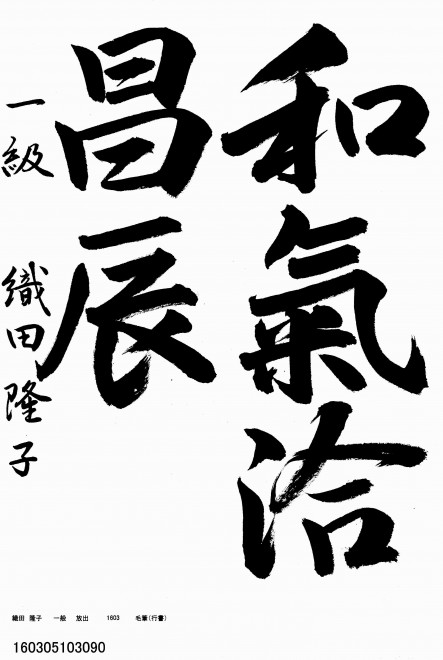 和氣洽
昌辰
一級 織田隆子
織田 隆子 一般 放出 1603 毛筆(行書)
160305103090